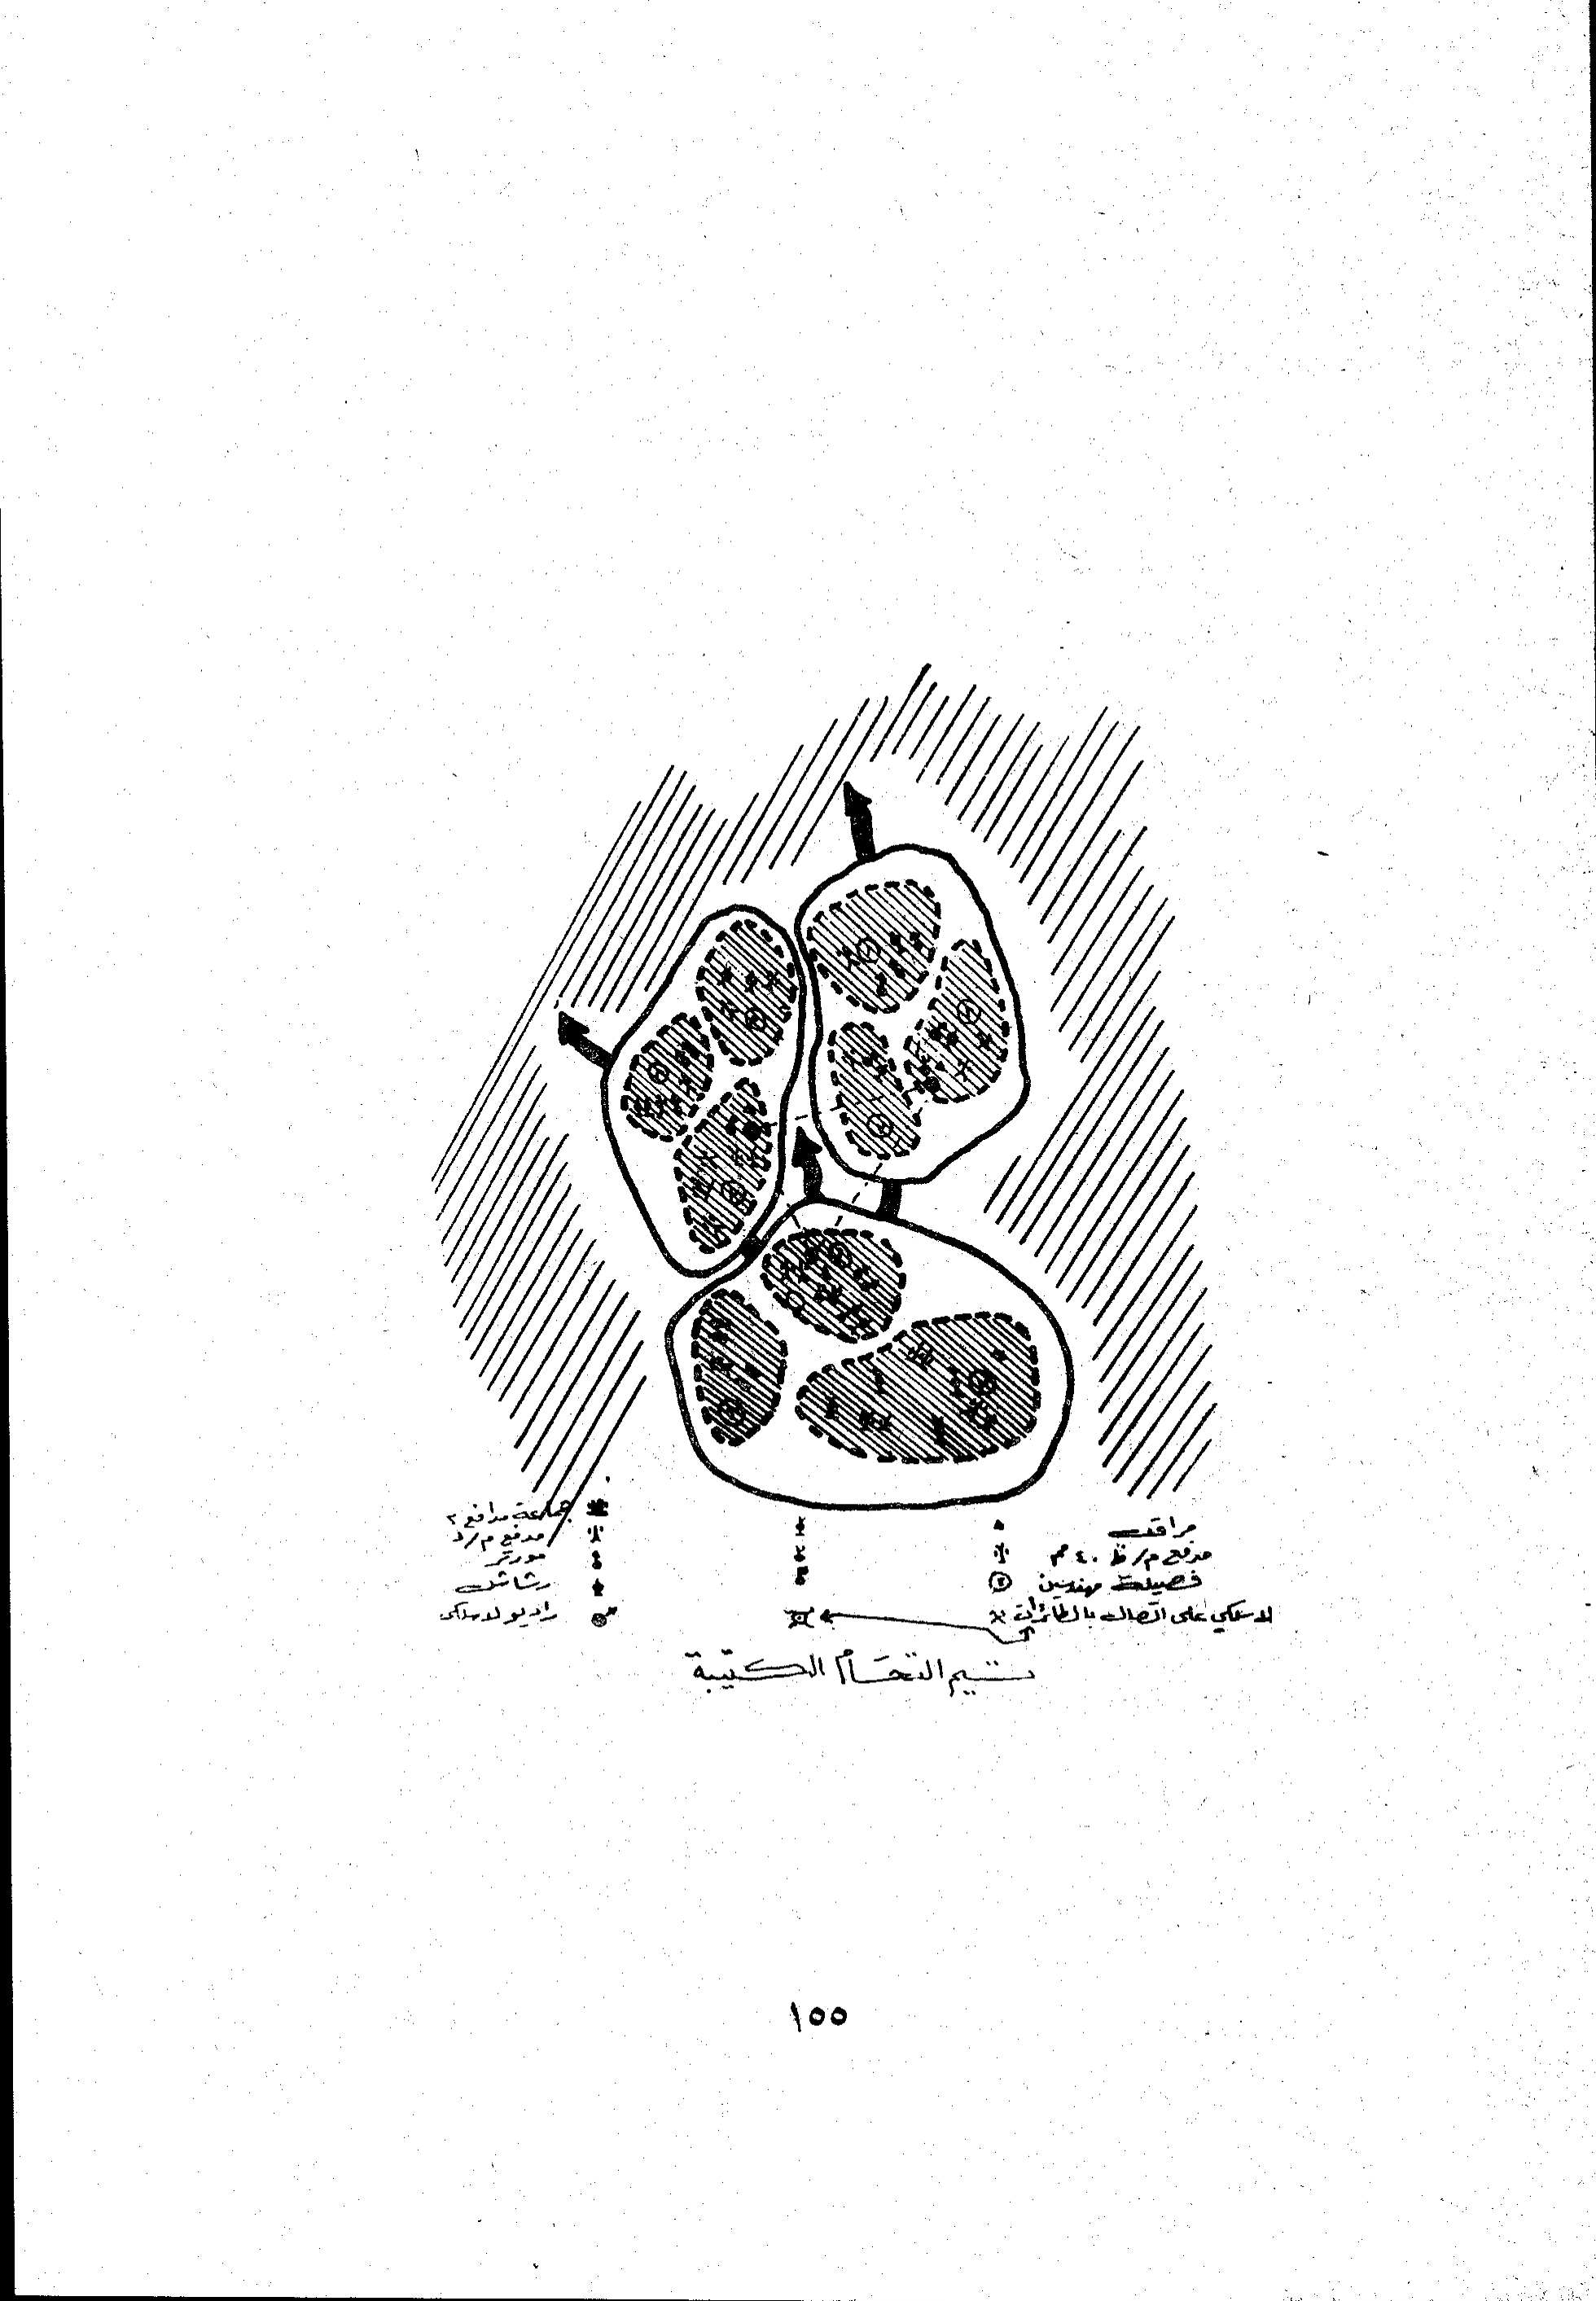 مراقب
مدفع م/ط ٤٠ مم
فصيلة مهندسين
لاسلكي على اتصال بالطائرات
جماعة مدافع
مدفع م/د
مورتر
رشاش
راديو لاسلكى
التحام الكتيبة
١٥٥